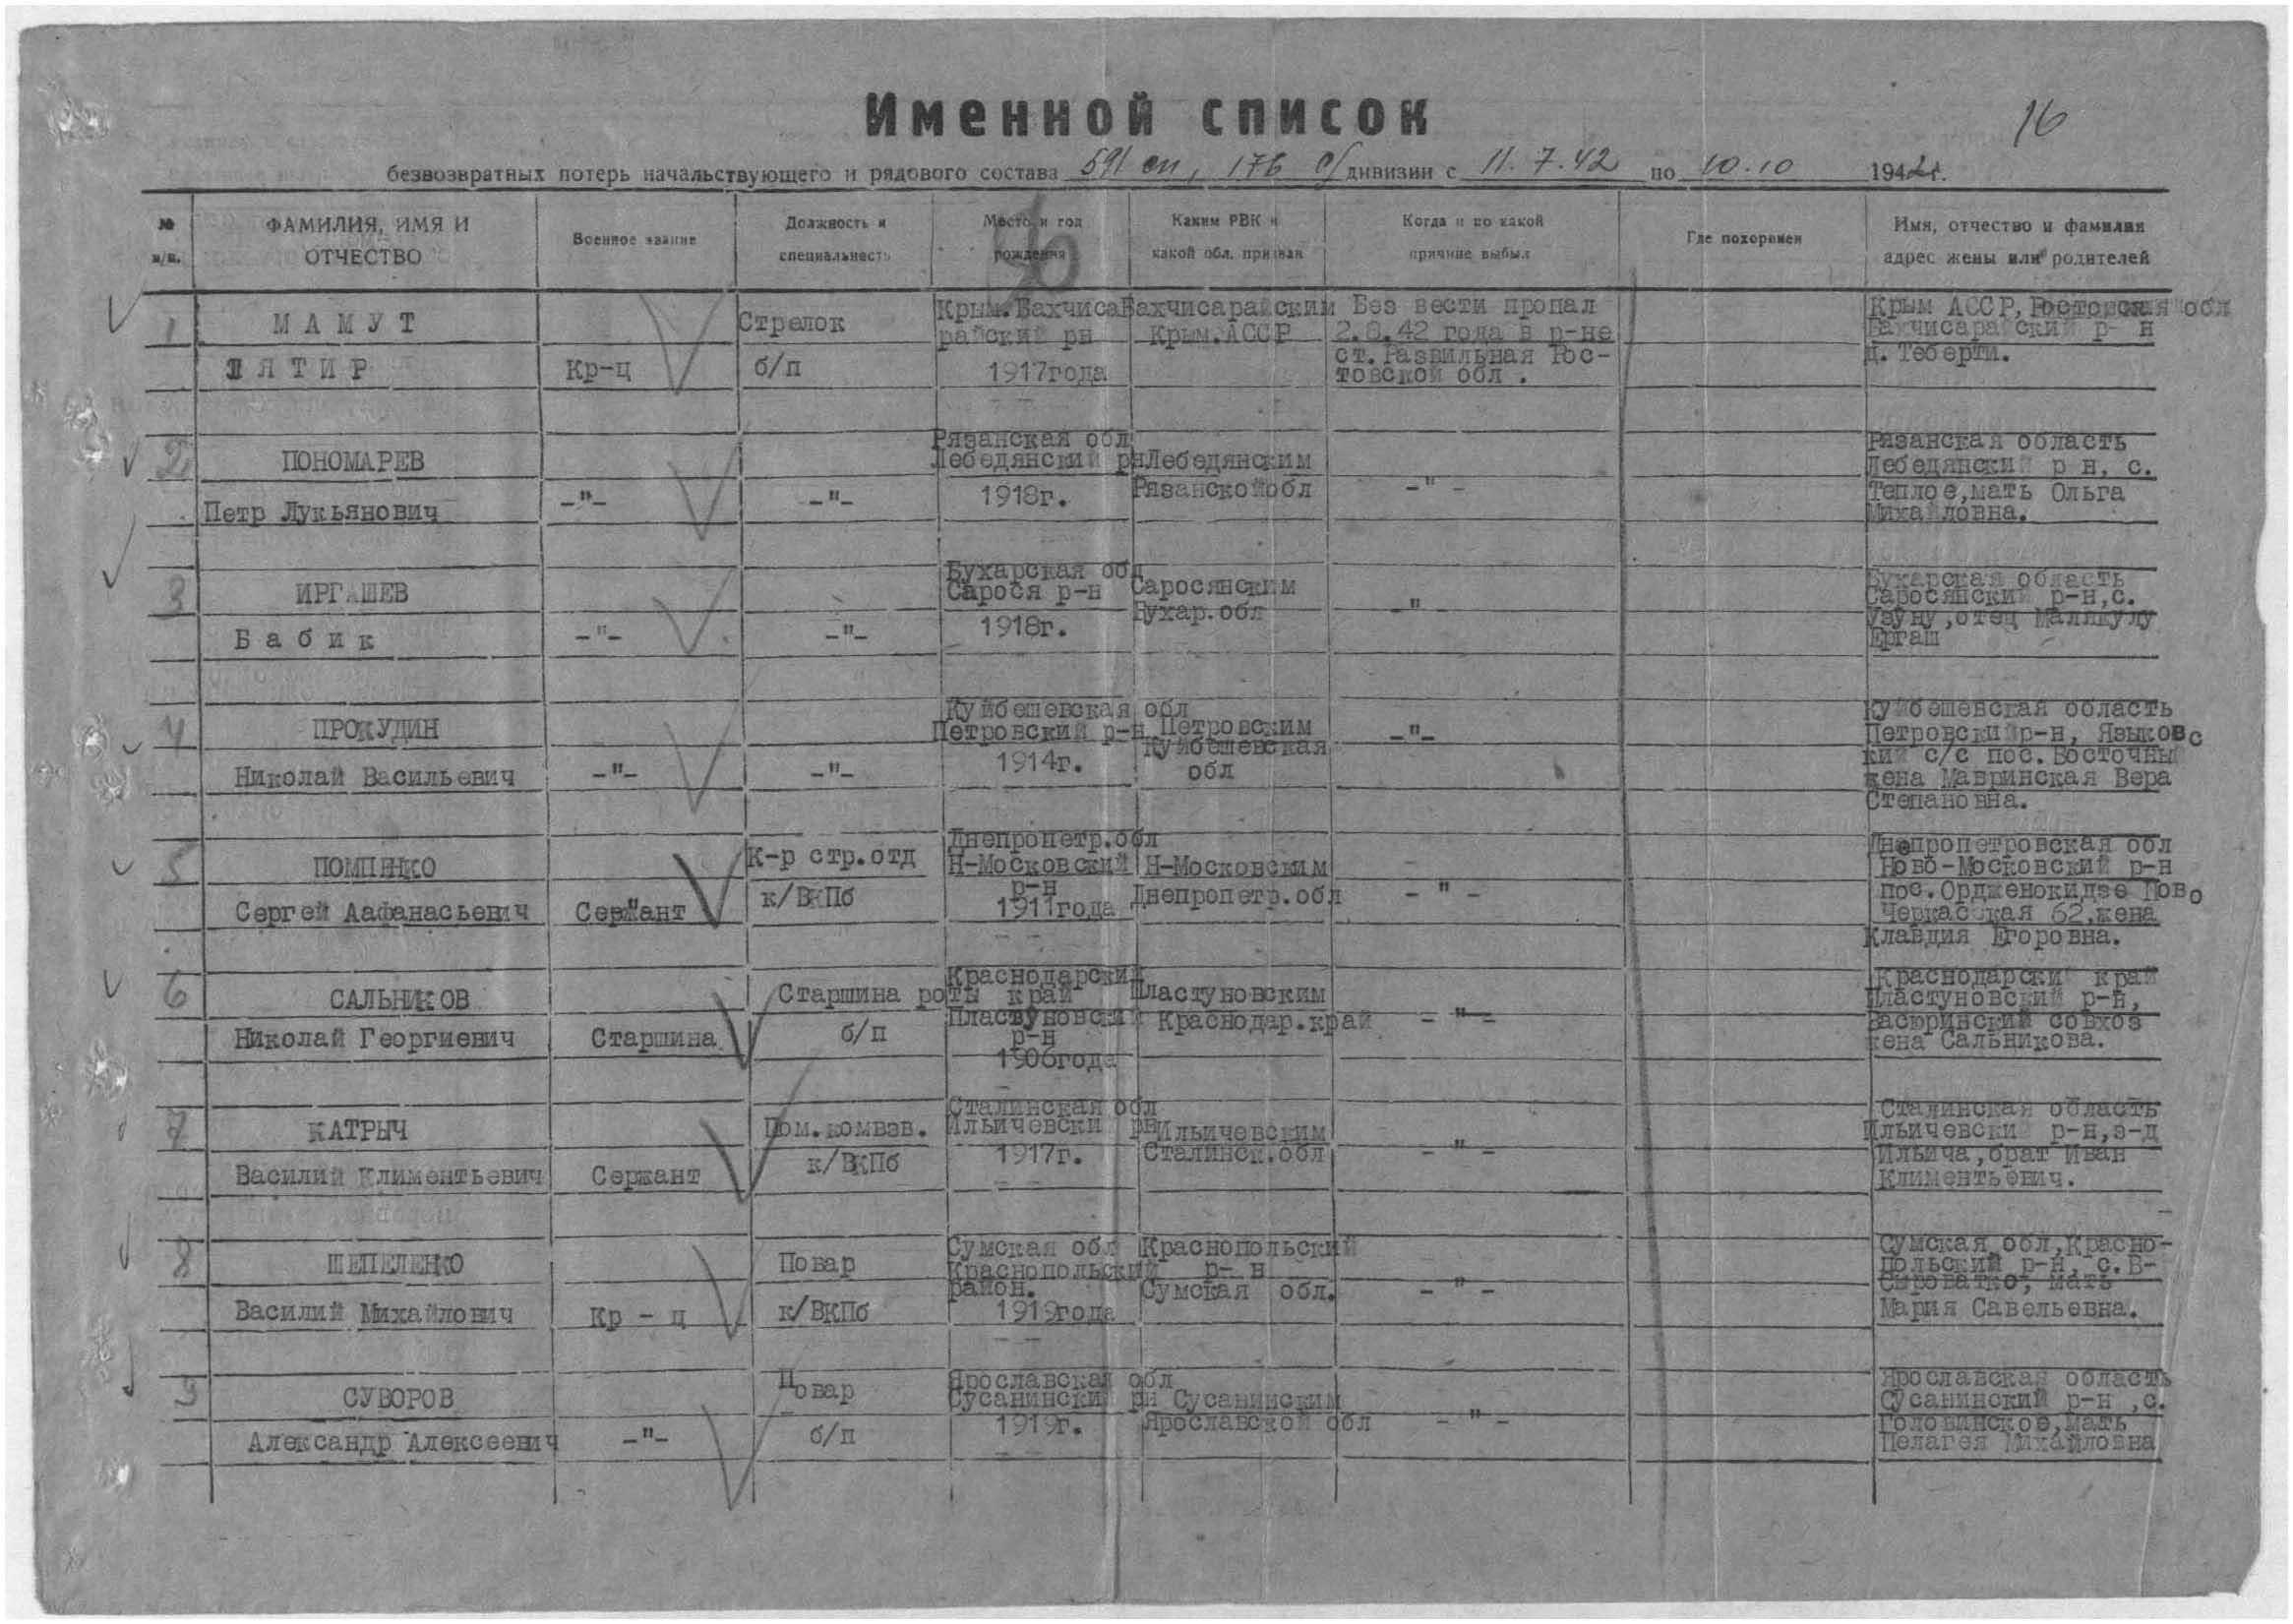 16
Именной список
безвозвратных потерь начальствующего и рядового состава 591 сп, 176 с/дивизии с 11.7.42 по 10.10 1942г.
№ п/п.
ФАМИЛИЯ, ИМЯ И ОТЧЕСТВО
Военное звание
Должность и специальность
Место и год рождения
Каким РВК и какой обл. призван
Когда и по какой причине выбыл
Где похоронен
Имя, отчество и фамилия адрес жены или родителей
1
МАМУТ
ПЯТИР
Кр-ц
Стрелок
б/п
Крым.Бахчиса
райский рн
1917года
Бахчисарайским
Крым.АССР
Без вести пропал
2.8.42 года в р-не
ст.Развильная Рос-
товской обл.
Крым АССР, Ростовская обл
Бахчисарайский р-н
д. Теберти.
2
ПОНОМАРЕВ
Петр Лукьянович
-"-
-"-
Рязанская обл
Лебедянский рн
1918г.
Лебедянским
Рязанской обл
-"-
Рязанская область
Лебедянский р н, с.
Теплое,мать Ольга
Михайловна.
3
ИРГАШЕВ
Бабик
-"-
-"-
Бухарская обл
Сарося р-н
1918г.
Саросянским
Бухар.обл
-"-
Бухарская область
Саросянский р-н,с.
Узуну,отец Маликулу
Ергаш
4
ПРОКУДИН
Николай Васильевич
-"-
-"-
Куйбешевская обл
Петровский р-н
1914г.
Петровским
Куйбешевская
обл
-"-
Куйбешевская область
Петровский р-н, Языковс
кий с/с пос.Восточный
жена Мавринская Вера
Степановна.
5
ПОМПЕНКО
Сергей Аафанасьевич
Сержант
К-р стр.отд
к/ВКПб
Днепропетр.обл
Н-Московский
р-н
1911года
Н-Московским
Днепропетр.обл
-"-
Днепропетровская обл
Ново-Московский р-н
пос.Ордженокидзе Ново
Черкасская 62.жена
Клавдия Егоровна.
6
САЛЬНИКОВ
Николай Георгиевич
Старшина
Старшина роты
б/п
Краснодарский
край
Пластуновский
р-н
1906года
Пластуновским
Краснодар.край
-"-
Краснодарский край
Пластуновский р-н,
Васюринский совхоз
жена Сальникова.
7
КАТРЫЧ
Василий Климентьевич
Сержант
Пом.комвзв.
к/ВКПб
Сталинская обл
Ильичевски рн
1917г.
Ильичевским
Сталинск.обл
-"-
Сталинская область
Ильичевский р-н,з-д
Ильича,брат Иван
Климентьевич.
8
ШЕПЕЛЕНКО
Василий Михайлович
Кр - ц
Повар
к/ВКПб
Сумская обл
Краснопольский
район.
1919года
Краснопольский
р- н
Сумская обл.
-"-
Сумская обл,Красно-
польский р-н, с.В-
Сыроватко, мать
Мария Савельевна.
9
СУВОРОВ
Александр Алексеевич
-"-
Повар
б/п
Ярославская обл
Сусанинский рн
1919г.
Сусанинским
Ярославской обл
-"-
Ярославская область
Сусанинский р-н ,с.
Головинское,мать
Пелагея Михайловна